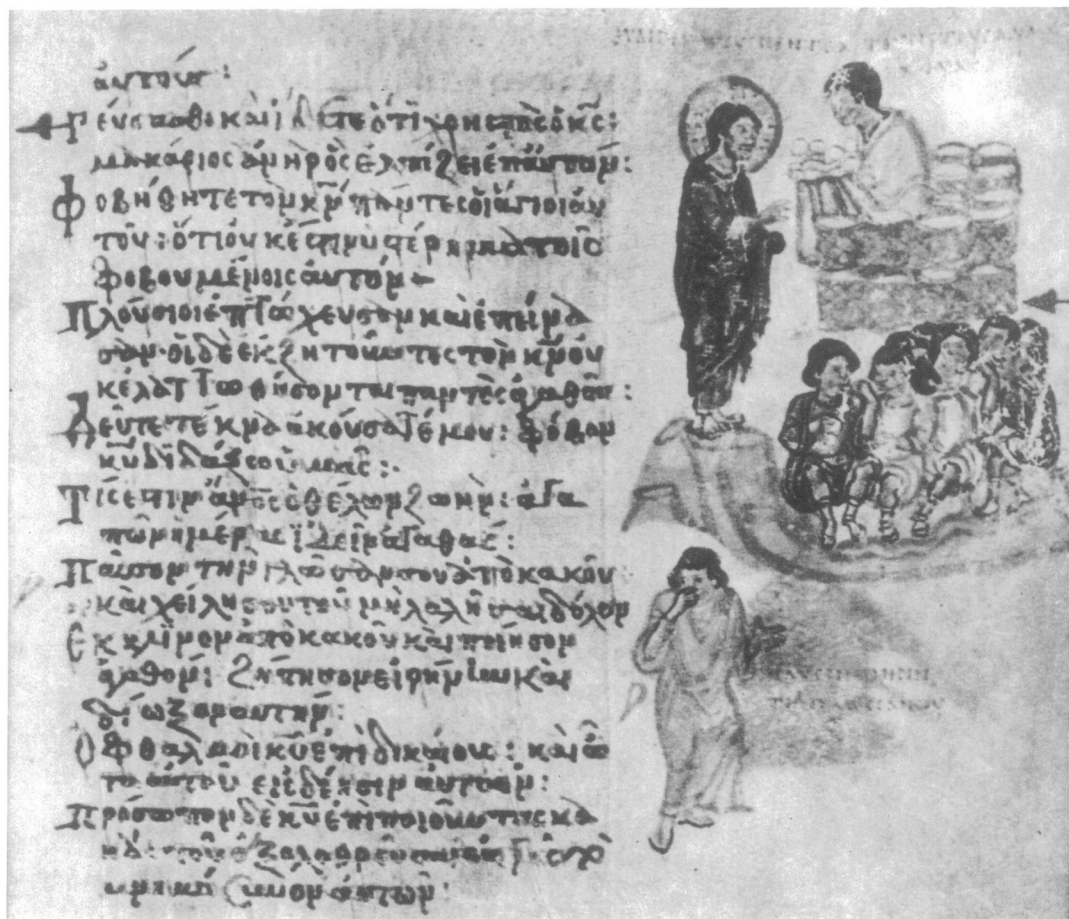 αὐτούς:
Γεύσασθε καὶ ἴδετε ὅτι χρηστὸς ὁ κ̅ς̅:
μακάριος ἀνὴρ ὃς ἐλπίζει ἐπ' αὐτόν:
Φοβήθητε τὸν κ̅ν̅ πάντες οἱ ἅγιοι αὐ
τοῦ: ὅτι οὐκ ἔστιν ὑστέρημα τοῖς
φοβουμένοις αὐτόν
Πλούσιοι ἐπτώχευσαν καὶ ἐπείνα
σαν· οἱ δὲ ἐκζητοῦντες τὸν κ̅ν̅ οὐ
κ ἐλαττωθήσονται παντὸς ἀγαθοῦ:
Δεῦτε τέκνα ἀκούσατέ μου: φόβον
κ̅υ̅ διδάξω ὑμᾶς:
Τίς ἐστιν ἄν̅ο̅ς̅ ὁ θέλων ζωὴν: ἀγα
πῶν ἡμέρας ἰδεῖν ἀγαθάς:
Παῦσον τὴν γλῶσσάν σου ἀπὸ κακοῦ:
καὶ χείλη σου τοῦ μὴ λαλῆσαι δόλον
Ἔκκλινον ἀπὸ κακοῦ καὶ ποίησον
ἀγαθόν: ζήτησον εἰρήνην καὶ
δίωξον αὐτήν:
Ὀφθαλμοὶ κ̅υ̅ ἐπὶ δικαίους: καὶ ὦ
τα αὐτοῦ εἰς δέησιν αὐτῶν:
Πρόσωπον δὲ κ̅υ̅ ἐπὶ ποιοῦντας κα
κά: τοῦ ἐξολοθρεῦσαι ἐκ γῆς τὸ
μν αὐτῶν